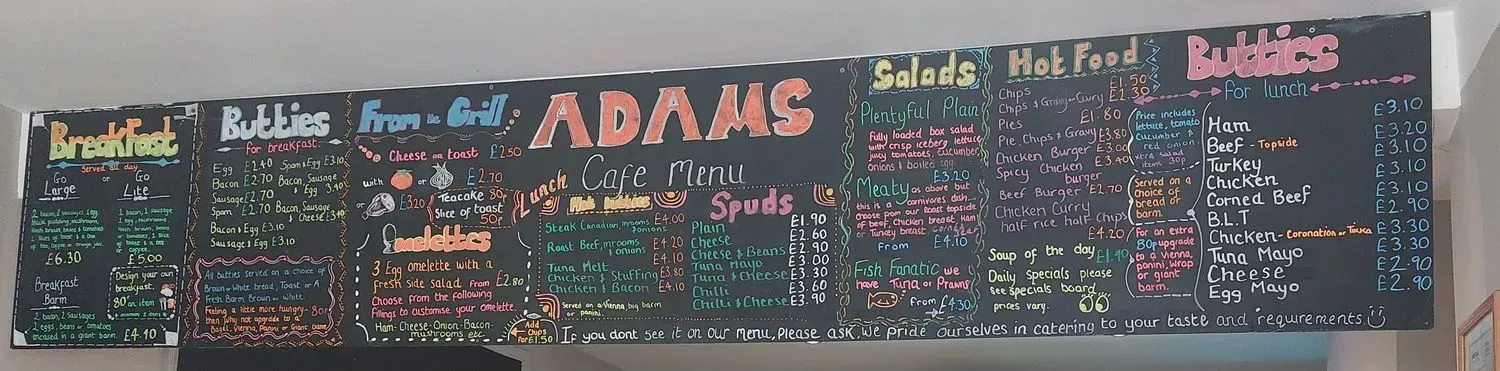 BreakFast
Served all day
Go or Go
Large Lite
2 bacon, 2 sausages, 1 egg,
black pudding, mushrooms,
hash brown, beans & tomatoes
£6.30
1 bacon, 1 sausage
1 egg, mushrooms,
hash brown, beans
or tomatoes, 1 slice
of toast & a tea
or coffee.
£5.00
Breakfast
Barm
2 bacon, 2 sausages
2 eggs, beans or tomatoes
encased in a giant barm. £4.10
Design your own
breakfast.
80p an item
Butties
for breakfast.
Egg £2.40
Bacon £2.70
Sausage £2.70
Spam £2.70
Spam & Egg £3.10
Bacon, Sausage
& Egg £3.40
Bacon, Sausage
& Cheese £3.40
Bacon & Egg £3.10
Sausage & Egg £3.10
All butties served on a choice of
Brown or White bread, Toast or A
Fresh Barm Brown or White.
Feeling a little more hungry-
then why not upgrade to a 80p
Bagel, Vienna, Panini or Giant barm
From the Grill
Cheese on toast £2.50
with or £2.70
or £3.20
Teacake 80p
Slice of toast
50p
Omelettes
3 Egg omelette with a
fresh side salad from £2.80
Choose from the following
fillings to customise your omelette.
Ham-Cheese-Onion-Bacon-
mushrooms etc
Add
Chips
For £1.50
ADAMS
Cafe Menu
Lunch
Hot butties
Steak Canadian, mrooms £4.00
& onions
Roast Beef, mrooms £4.20
& onions
Tuna Melt £4.10
Chicken & Stuffing £3.80
Chicken & Bacon £4.10
Served on a Vienna, big barm
or panini.
Spuds
Plain £1.90
Cheese £2.60
Cheese & Beans £2.90
Tuna Mayo £3.00
Tuna & Cheese £3.30
Chilli £3.60
Chilli & Cheese £3.90
Salads
Plentyful Plain
Fully loaded box salad
with crisp iceberg lettuce
juicy tomatoes, cucumber,
onions & boiled egg.
£3.20
Meaty as above but
this is a carnivores dish...
choose from our Roast topside
of beef, Chicken breast, Ham
or Turkey breast.
From £4.10
Fish Fanatic we
have Tuna or Prawns
From
£4.30
Hot Food
Chips £1.50
Chips & Gravy or Curry £2.30
Pies £1.80
Pie, Chips & Gravy £3.80
Chicken Burger £3.00
Spicy Chicken £3.40
burger
Beef Burger £2.70
Chicken Curry
half rice half chips
£4.20
Soup of the day £1.40
Daily Specials please
see specials board
prices vary.
Butties
for lunch
Price includes
lettuce, tomato
Cucumber &
red onion
xtra salad
items 30p
Served on a
choice of
bread or
barm.
For an extra
80p upgrade
to a Vienna,
panini, wrap
or giant
barm.
Ham £3.10
Beef - Topside £3.20
Turkey £3.10
Chicken £3.10
Corned Beef £2.90
B.L.T £3.30
Chicken - Coronation or Tikka £3.30
Tuna Mayo £2.90
Cheese £2.90
Egg Mayo
If you dont see it on our menu, please ask, we pride ourselves in catering to your taste and requirements.